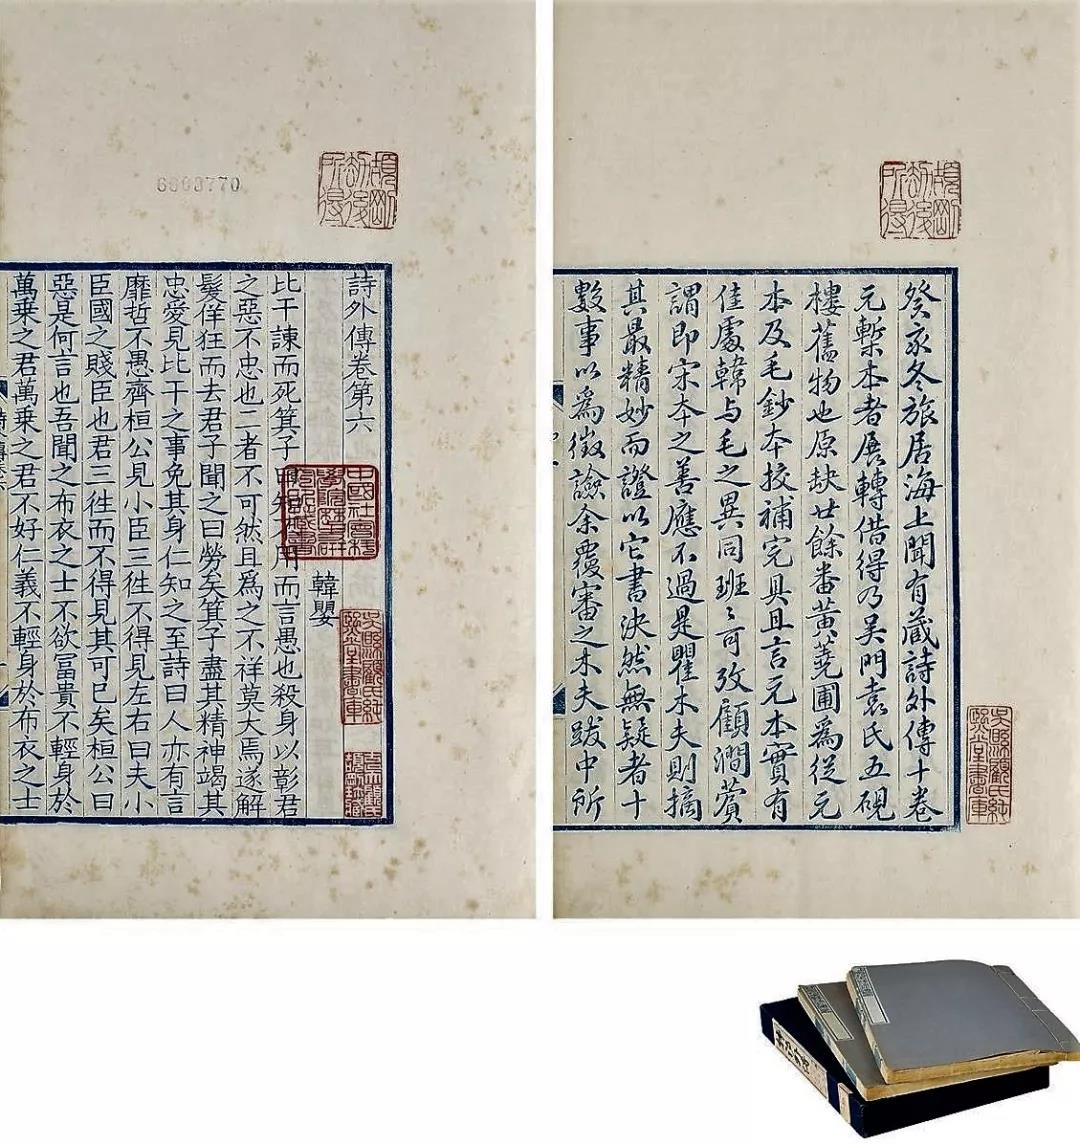 頡剛劫後所得
癸亥冬旅居海上聞有蔵詩外傳十卷
元槧本者展轉借得乃吴門袁氏五硯
樓舊物也原缺廿餘番黄蕘圃爲從元
本及毛鈔本挍補完具且言元本實有
佳處韓与毛之異同班〻可攷顧澗薲
謂即宋本之善應不過是瞿木夫則摘
其最精妙而證以它書決然無疑者十
數事以爲徵譣余覆審之木夫跋中所
頡剛劫後所得
詩外傳卷第六
韓嬰
比干諫而死箕子曰知不用而言愚也殺身以彰君
之惡不忠也二者不可然且爲之不祥莫大焉遂解
髮佯狂而去君子聞之曰勞矣箕子盡其精神竭其
忠愛見比干之事免其身仁知之至詩曰人亦有言
靡哲不愚齊桓公見小臣三徃不得見左右曰夫小
臣國之賤臣也君三徃而不得見其可已矣桓公曰
惡是何言也吾聞之布衣之士不欲冨貴不輕身於
萬乗之君萬乗之君不好仁義不輕身於布衣之士